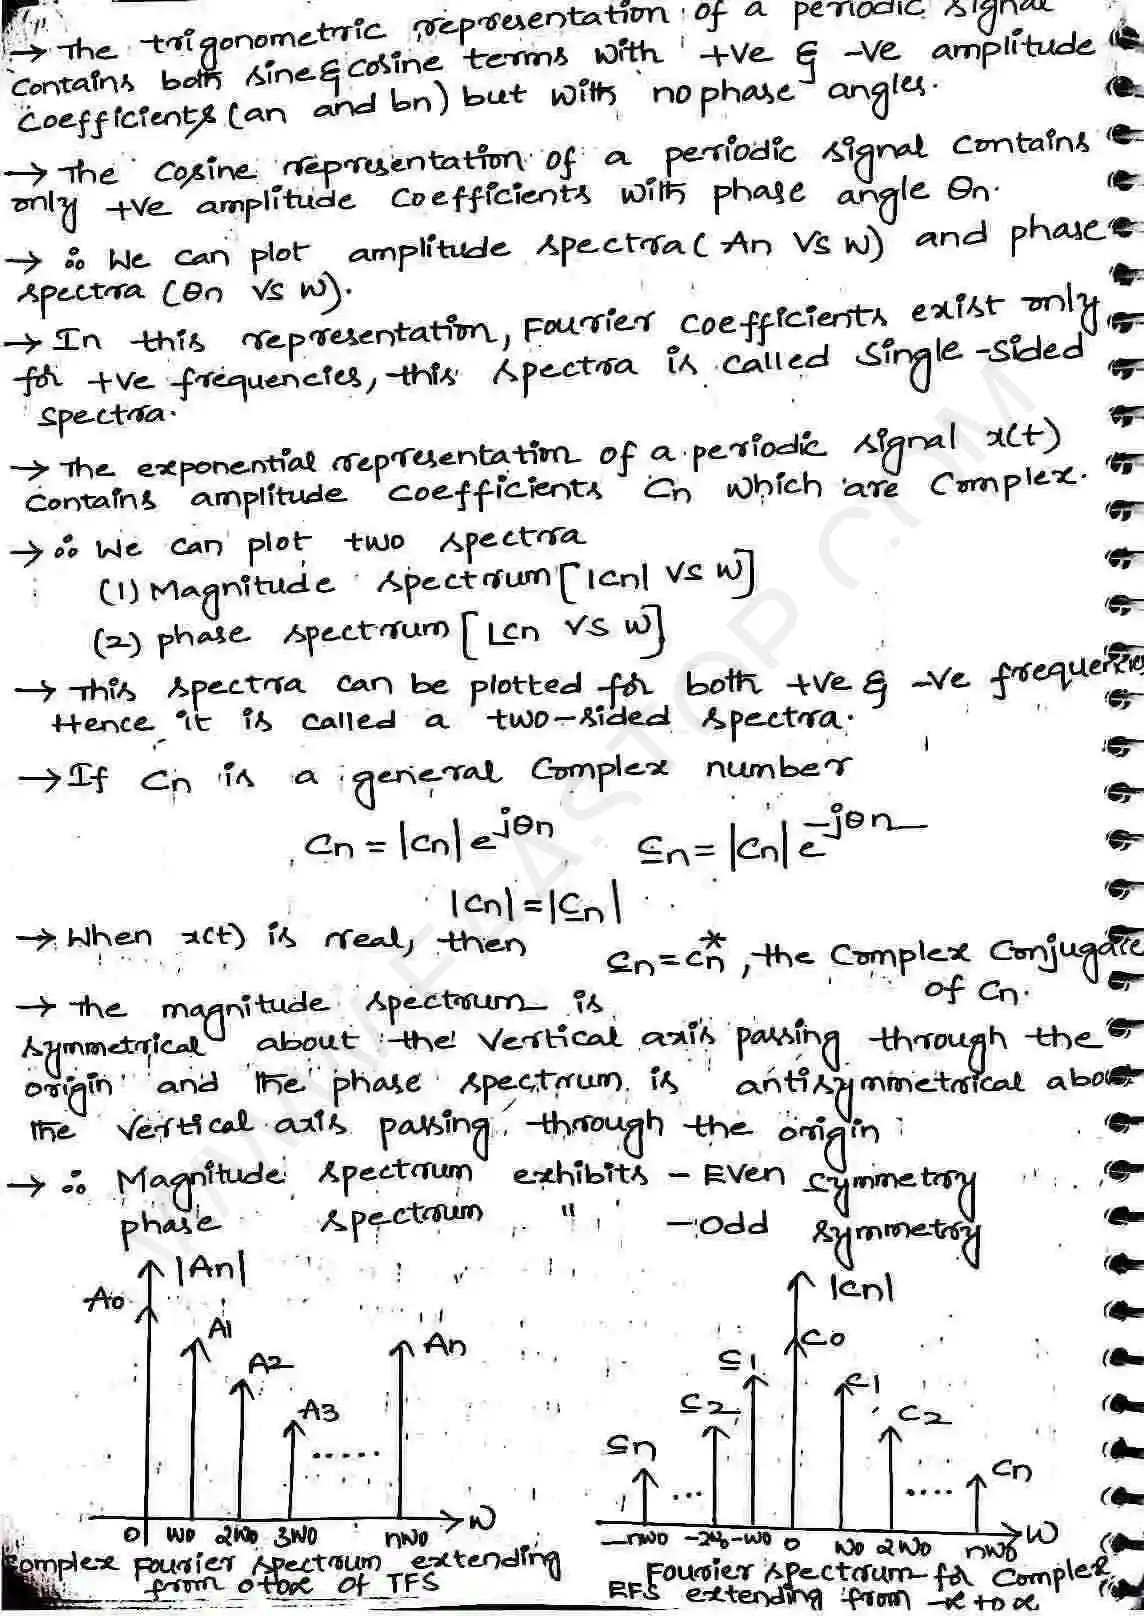 → The trigonometric representation of a periodic signal
contains both sine & cosine terms with +ve & -ve amplitude
coefficients (an and bn) but with no phase angles.
→ The cosine representation of a periodic signal contains
only +ve amplitude coefficients with phase angle θn.
→ ∴ We can plot amplitude spectra (An Vs W) and phase
spectra (θn Vs W).
→ In this representation, Fourier coefficients exist only
for +ve frequencies, this spectra is called Single-sided
spectra.
→ The exponential representation of a periodic signal x(t)
contains amplitude coefficients Cn which are complex.
→ ∴ We can plot two spectra
(1) Magnitude spectrum [|Cn| Vs W]
(2) phase spectrum [∠Cn Vs W]
→ This spectra can be plotted for both +ve & -ve
Hence it is called a two-sided spectra.
→ If Cn is a general complex number
Cn = |Cn| e^jθn    C-n = |Cn| e^-jθn
|Cn| = |C-n|
→ When x(t) is real, then C-n = Cn*, the complex conjugate
of Cn.
→ The magnitude spectrum is
symmetrical about the vertical axis passing through the
origin and the phase spectrum is antisymmetrical
the vertical axis passing through the origin
→ ∴ Magnitude spectrum exhibits - Even symmetry
phase spectrum " - Odd symmetry
|An|    |Cn|
A0 A1 A2 A3 ...... An    C-n ... C-2 C-1 C0 C1 C2 .... Cn
0 W0 2W0 3W0 nW0 W    -nW0 -2W0 -W0 0 W0 2W0 nW0 W
Complex Fourier spectrum extending
from 0 to ∝ of TFS
Fourier spectrum for Complex
EFS extending from -∝ to ∝
WWW.FELASTOP.COM